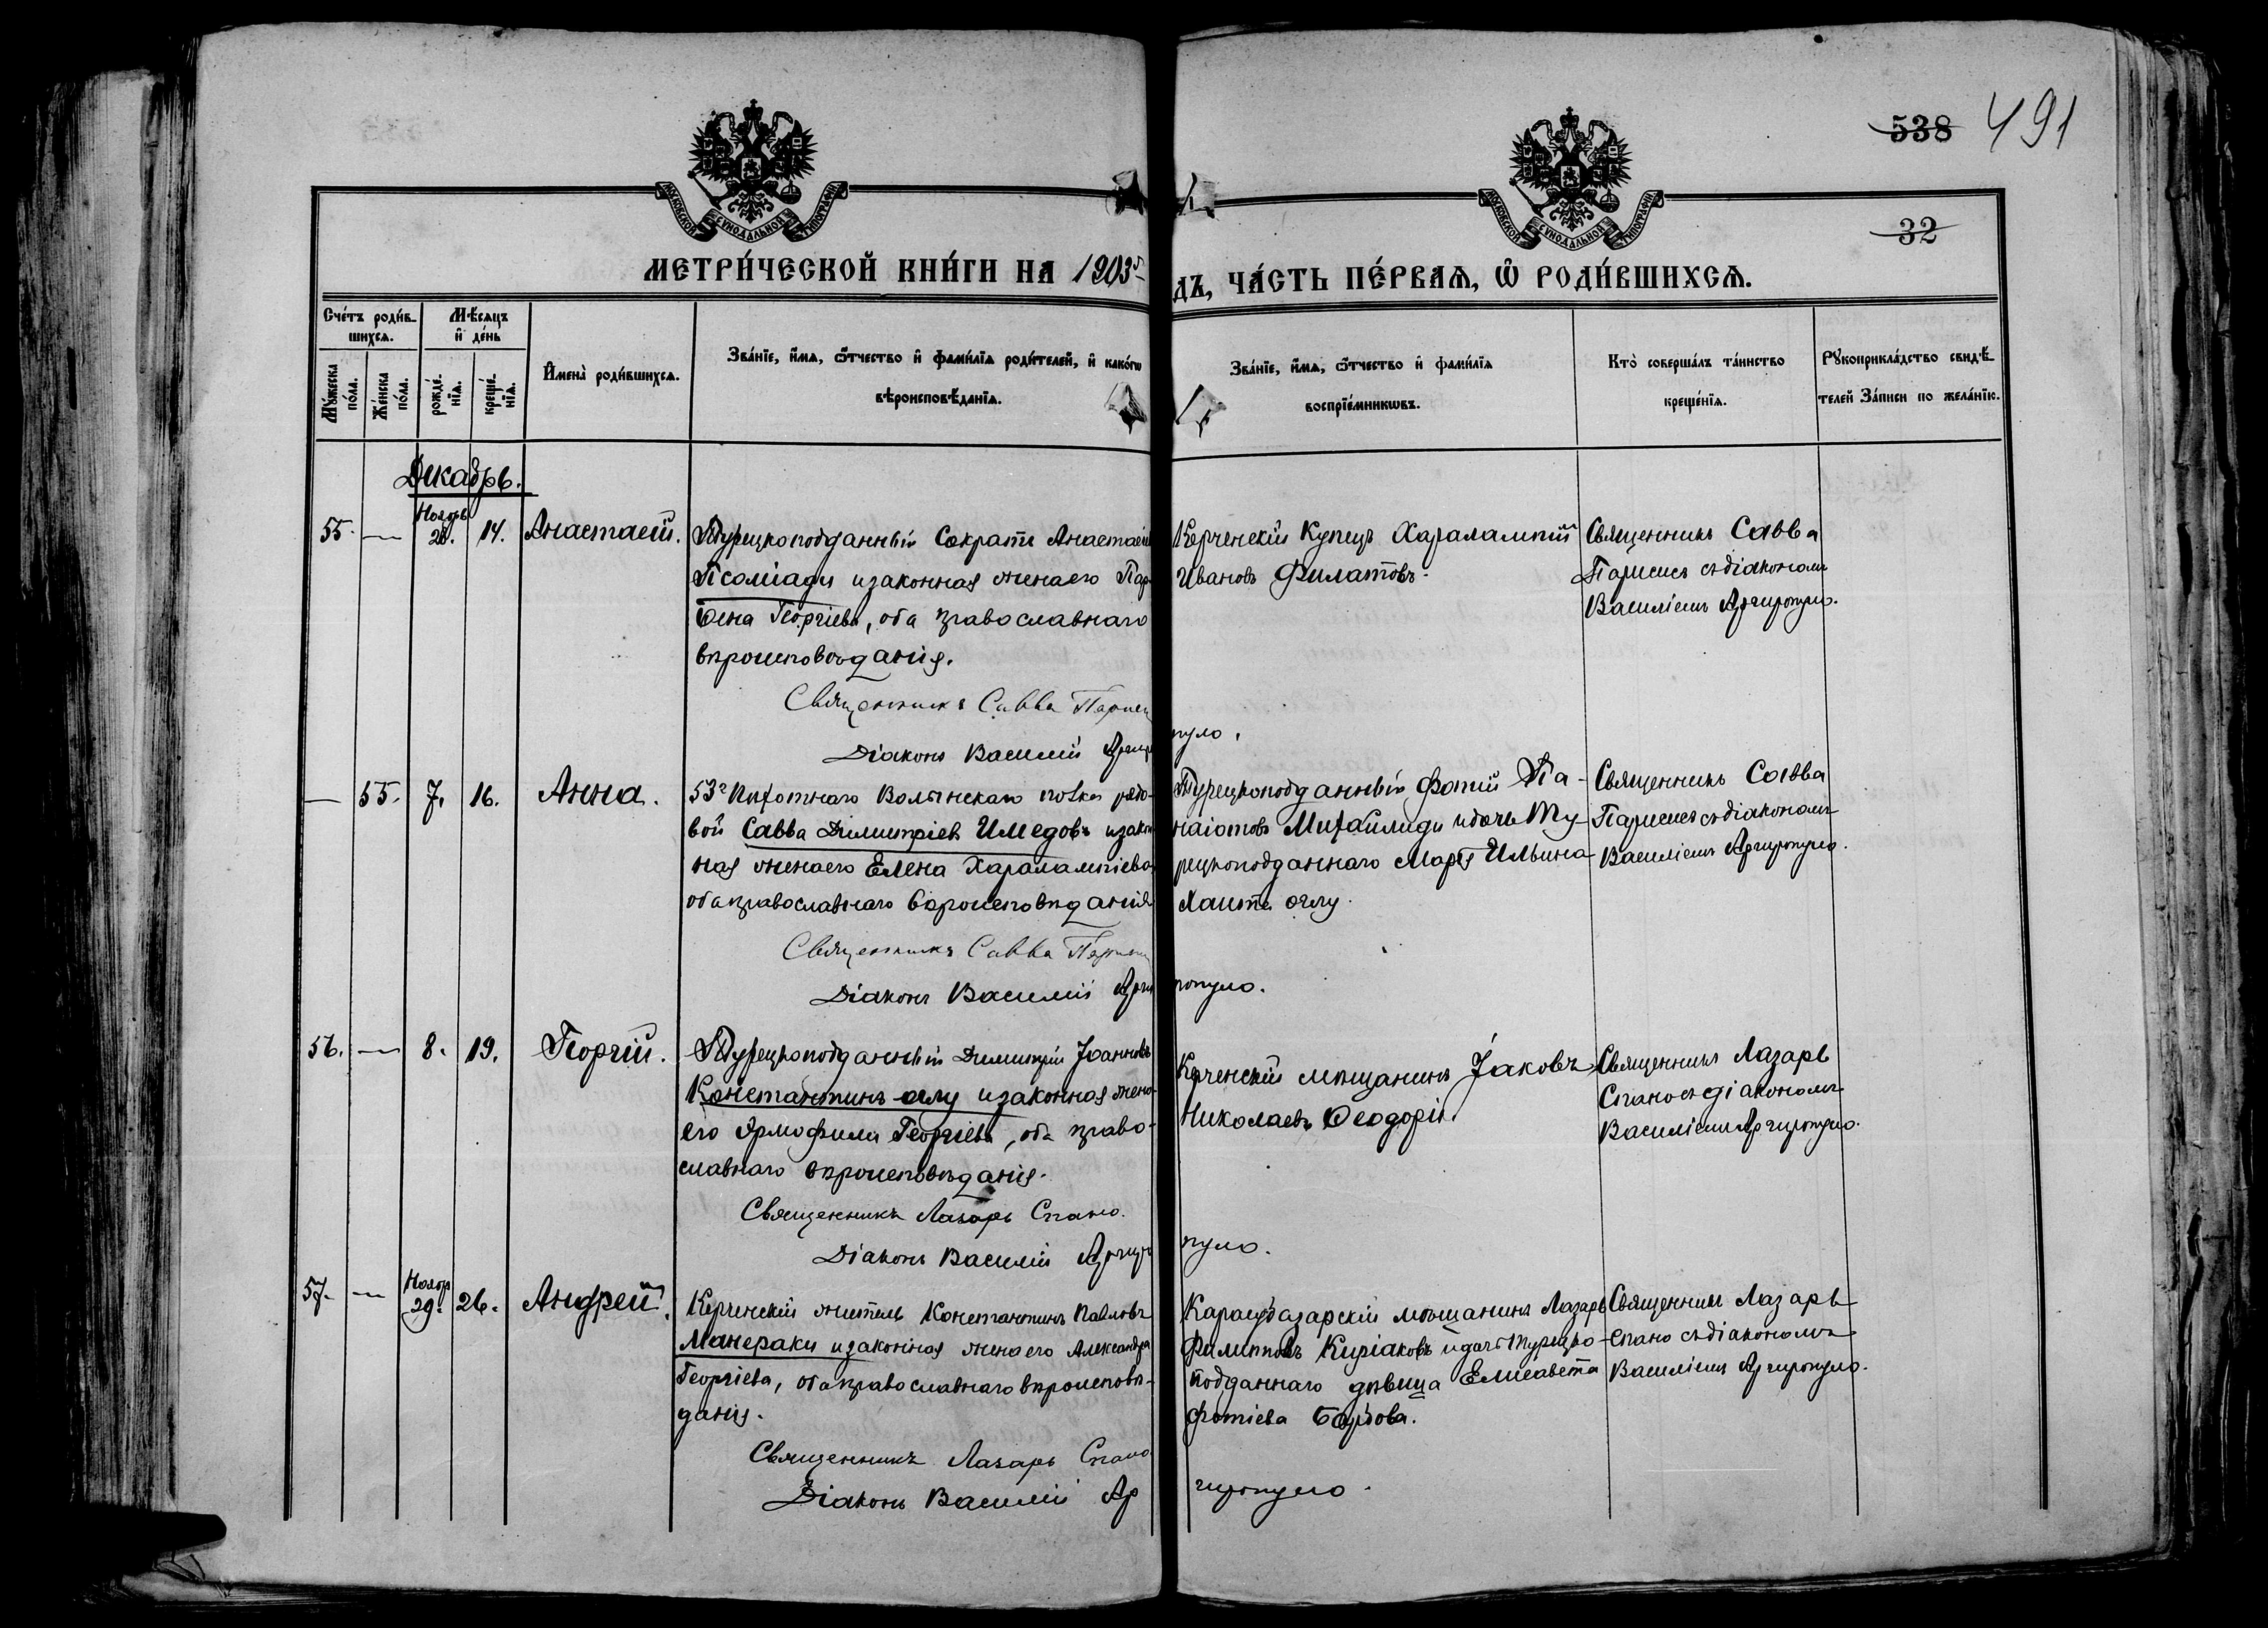 538 491
32
МОСКОВСКОЙ СѴНОДАЛЬНОЙ ТИПОГРАФІИ
МОСКОВСКОЙ СѴНОДАЛЬНОЙ ТИПОГРАФІИ
МЕТРИ́ЧЕСКОЙ КНИ́ГИ НА 1903
ДЪ, ЧА́СТЬ ПЕ́РВАѦ, Ѽ РОДИ́ВШИХСѦ.
Сче́тъ роди́вшихсѧ.
Мѣ́сѧцъ и҆ де́нь
Мꙋ́жеска по́ла.
Же́нска по́ла.
рожде́нїѧ.
креще́нїѧ.
И҆мена̀ роди́вшихсѧ.
Зва́нїе, и҆́мѧ, ѻ҆́тчество и҆ фами́лїѧ роди́телей, и҆ како́гѡ
вѣроисповѣ́данїѧ.
Зва́нїе, и҆́мѧ, ѻ҆́тчество и҆ фами́лїѧ
воспрїе́мникѡвъ.
Кто̀ соверша́лъ та́инство
креще́нїѧ.
Рꙋкоприкла́дство свидѣ́телей За́писи по жела́нїю.
Декабрь.
55. — Ноябрь 28. 14. Анастасій.
Турецкоподданный Сократъ Анастасіев
Псоміади и законная жена его Пар-
ѳена Георгіева, оба православнаго
вѣроисповѣданія.
Священникъ Савва Париси
Діаконъ Василій Аргиро
пуло.
Керченскій Купецъ Харалампій
Ивановъ Филатовъ.
Священникъ Савва
Парисисъ съ діакономъ
Василіемъ Аргиропуло.
— 55. 7. 16. Анна.
53го Пѣхотнаго Волынскаго полка рядо-
вой Савва Димитріевъ Имедовъ и закон
ная жена его Елена Харалампіева
оба православнаго вѣроисповѣданія
Священникъ Савва Париси
Діаконъ Василій Арги
ропуло.
Турецкоподданный Фотій Па-
наіотовъ Михайлиди и дочь Ту-
рецкоподданнаго Марѳа Ильина
оглу.
Священникъ Савва
Парисисъ съ діакономъ
Василіемъ Аргиропуло.
56. — 8. 19. Георгій.
Турецкоподданный Димитрій Іоанновъ
Константинъ-оглу и законная жена
его Ярмофили Георгіева, оба право-
славнаго вѣроисповѣданія.
Священникъ Лазарь Спано.
Діаконъ Василій Аргиро
пуло.
Керченскій мѣщанинъ Іаковъ
Николаевъ Ѳеодориди
Священникъ Лазарь
Спано съ діакономъ
Василіемъ Аргиропуло.
57. — Ноябр 29. 26. Андрей.
Керченскій житель Константинъ Павловъ
Манераки и законная жена его Александра
Георгіева, оба православнаго вѣроисповѣ-
данія.
Священникъ Лазарь Спано
Діаконъ Василій Ар
гиропуло.
Карасубазарскій мѣщанинъ Лазарь
Филипповъ Киріаковъ и дочь Турецко-
подданнаго дѣвица Елисавета
Фотіева
Священникъ Лазарь
Спано съ діакономъ
Василіемъ Аргиропуло.